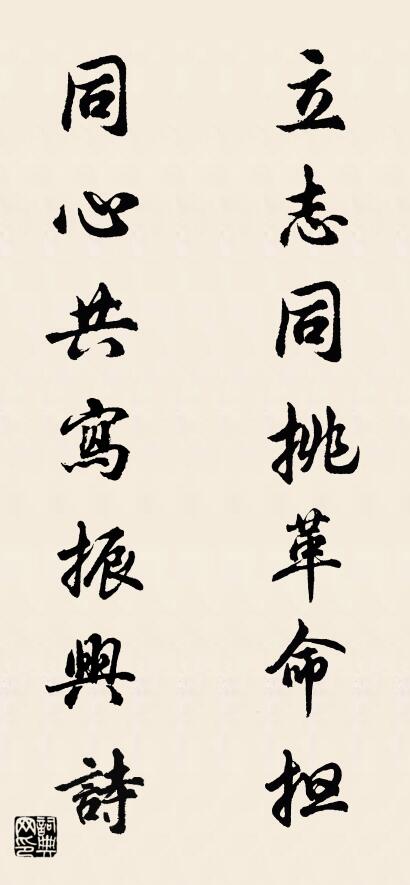 立志同挑革命担
同心共寫振興詩
詞典网印